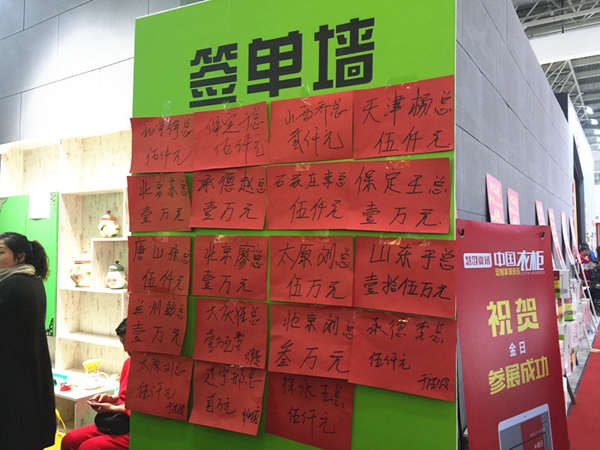 签单墙
北京徐总
伍仟元
保定于总
伍仟元
山西乔总
贰仟元
天津杨总
伍仟元
北京袁总
壹万元
承德赵总
壹万元
石家庄李总
伍仟元
保定王总
壹万元
唐山张总
伍仟元
北京廖总
壹万元
太原刘总
伍万元
山东于总
壹拾伍万元
兰州
总
壹万元
大庆
总
壹万元
北京刘总
叁万元
承德
总
伍仟元
太原刘总
伍仟元
辽宁郝总
贰万元
王总
伍仟元
中国衣柜
定制家居资讯
祝贺
金日
参展成功